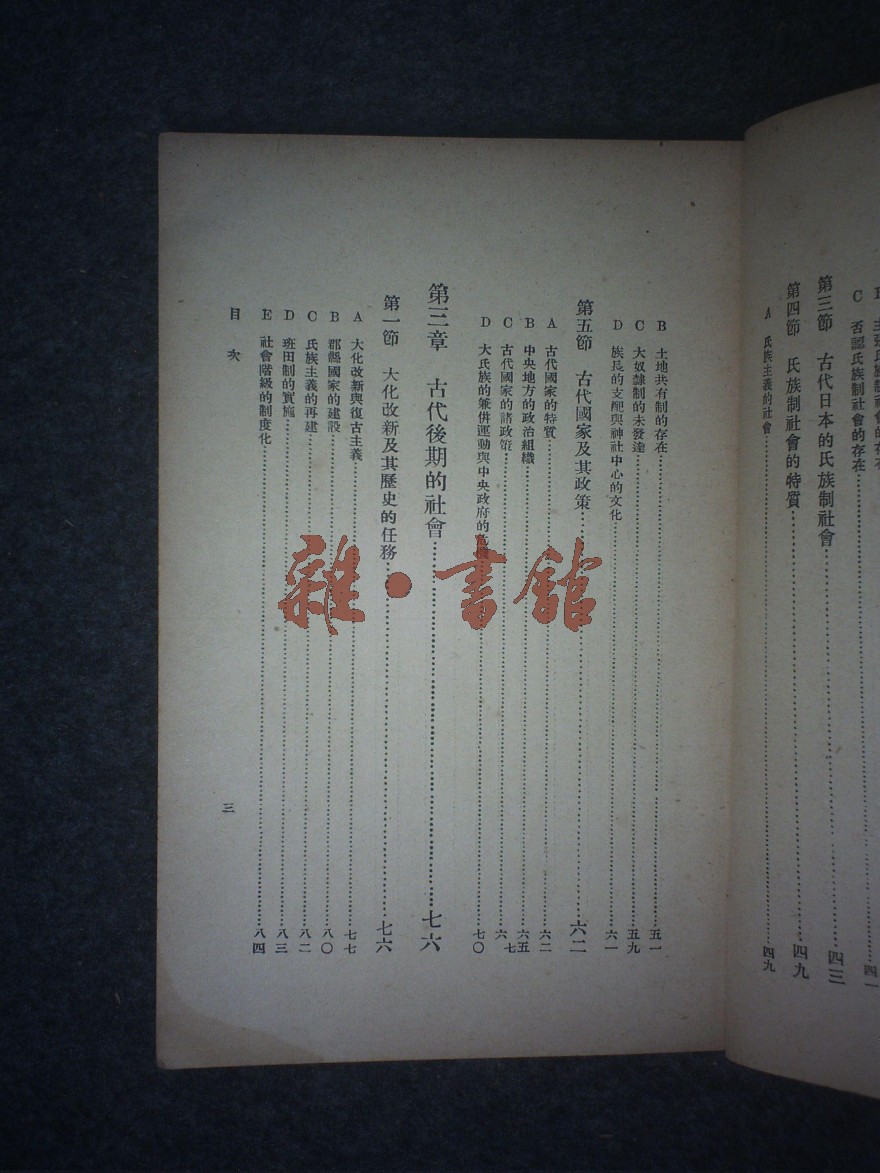 C 否認氏族制社會的存在……四一
第三節 古代日本的氏族制社會……四三
第四節 氏族制社會的特質……四九
A 氏族主義的社會……四九
B 土地共有制的存在……五一
C 大奴隸制的未發達……五九
D 族長的支配與神社中心的文化……六一
第五節 古代國家及其政策……六二
A 古代國家的特質……六二
B 中央地方的政治組織……六五
C 古代國家的諸政策……六七
D 大氏族的兼併運動與中央政府的危……七〇
第三章 古代後期的社會……七六
第一節 大化改新及其歷史的任務……七六
A 大化改新與復古主義……七七
B 郡縣國家的建設……八〇
C 氏族主義的再建……八二
D 班田制的實施……八三
E 社會階級的制度化……八四
目次
三
雜·書館